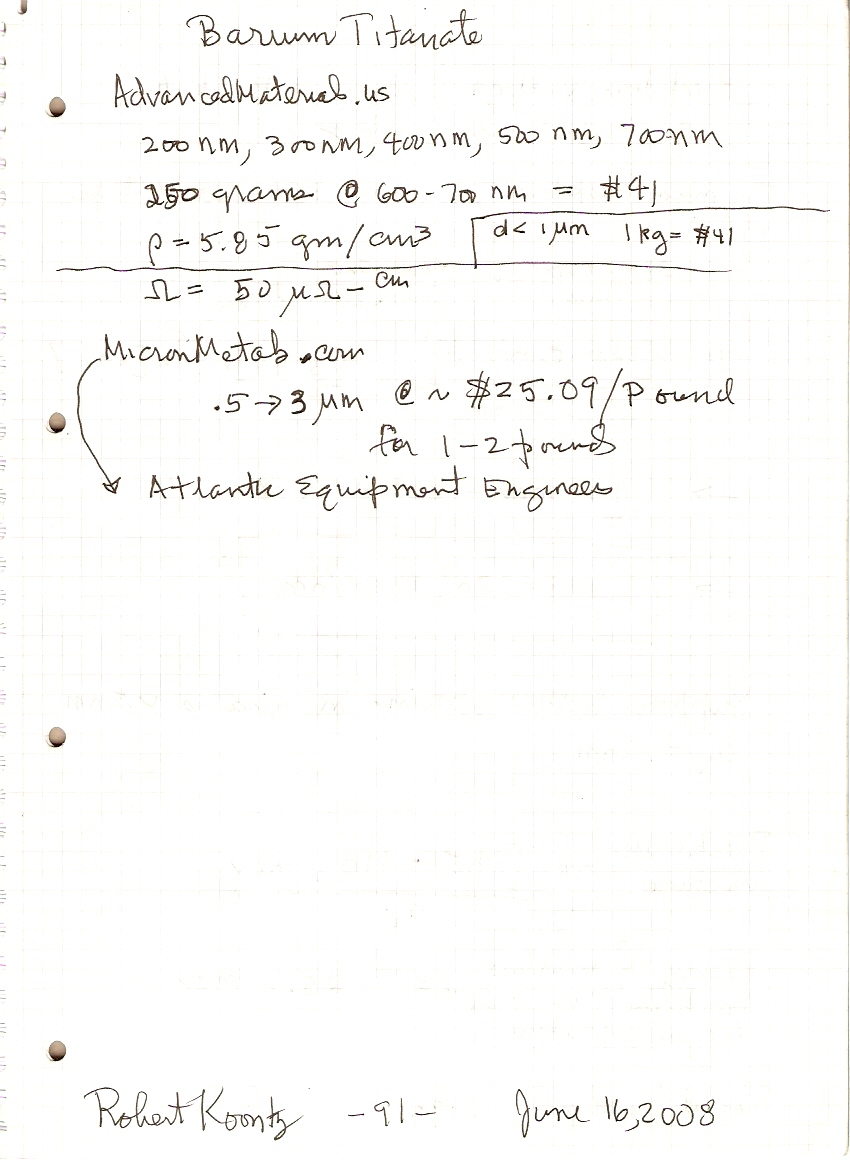 Barium Titanate
AdvancedMaterial.us
200 nm, 300 nm, 400 nm, 500 nm, 700 nm
250 grams @ 600-700 nm = $41
ρ = 5.85 gm/cm³ d < 1 μm 1 kg = $41
Ω = 50 μΩ-cm
MicronMetals.com
.5 → 3 μm @ ~ $25.09/Pound
for 1-2 pounds
Atlantic Equipment Engineers
Robert Koontz -91- June 16, 2008